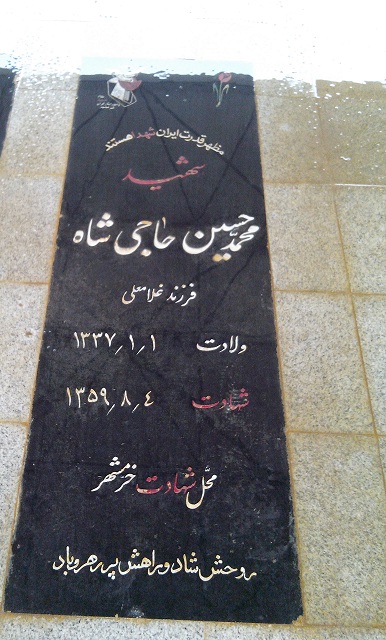 مظهر قدرت ایران شهدا هستند
شهید
محمدحسین حاجی شاه
فرزند غلامعلی
ولادت ۱۳۳۷٫۱٫۱
شهادت ۱۳۵۹٫۸٫۴
محل شهادت خرمشهر
روحش شاد و راهش پر رهرو باد